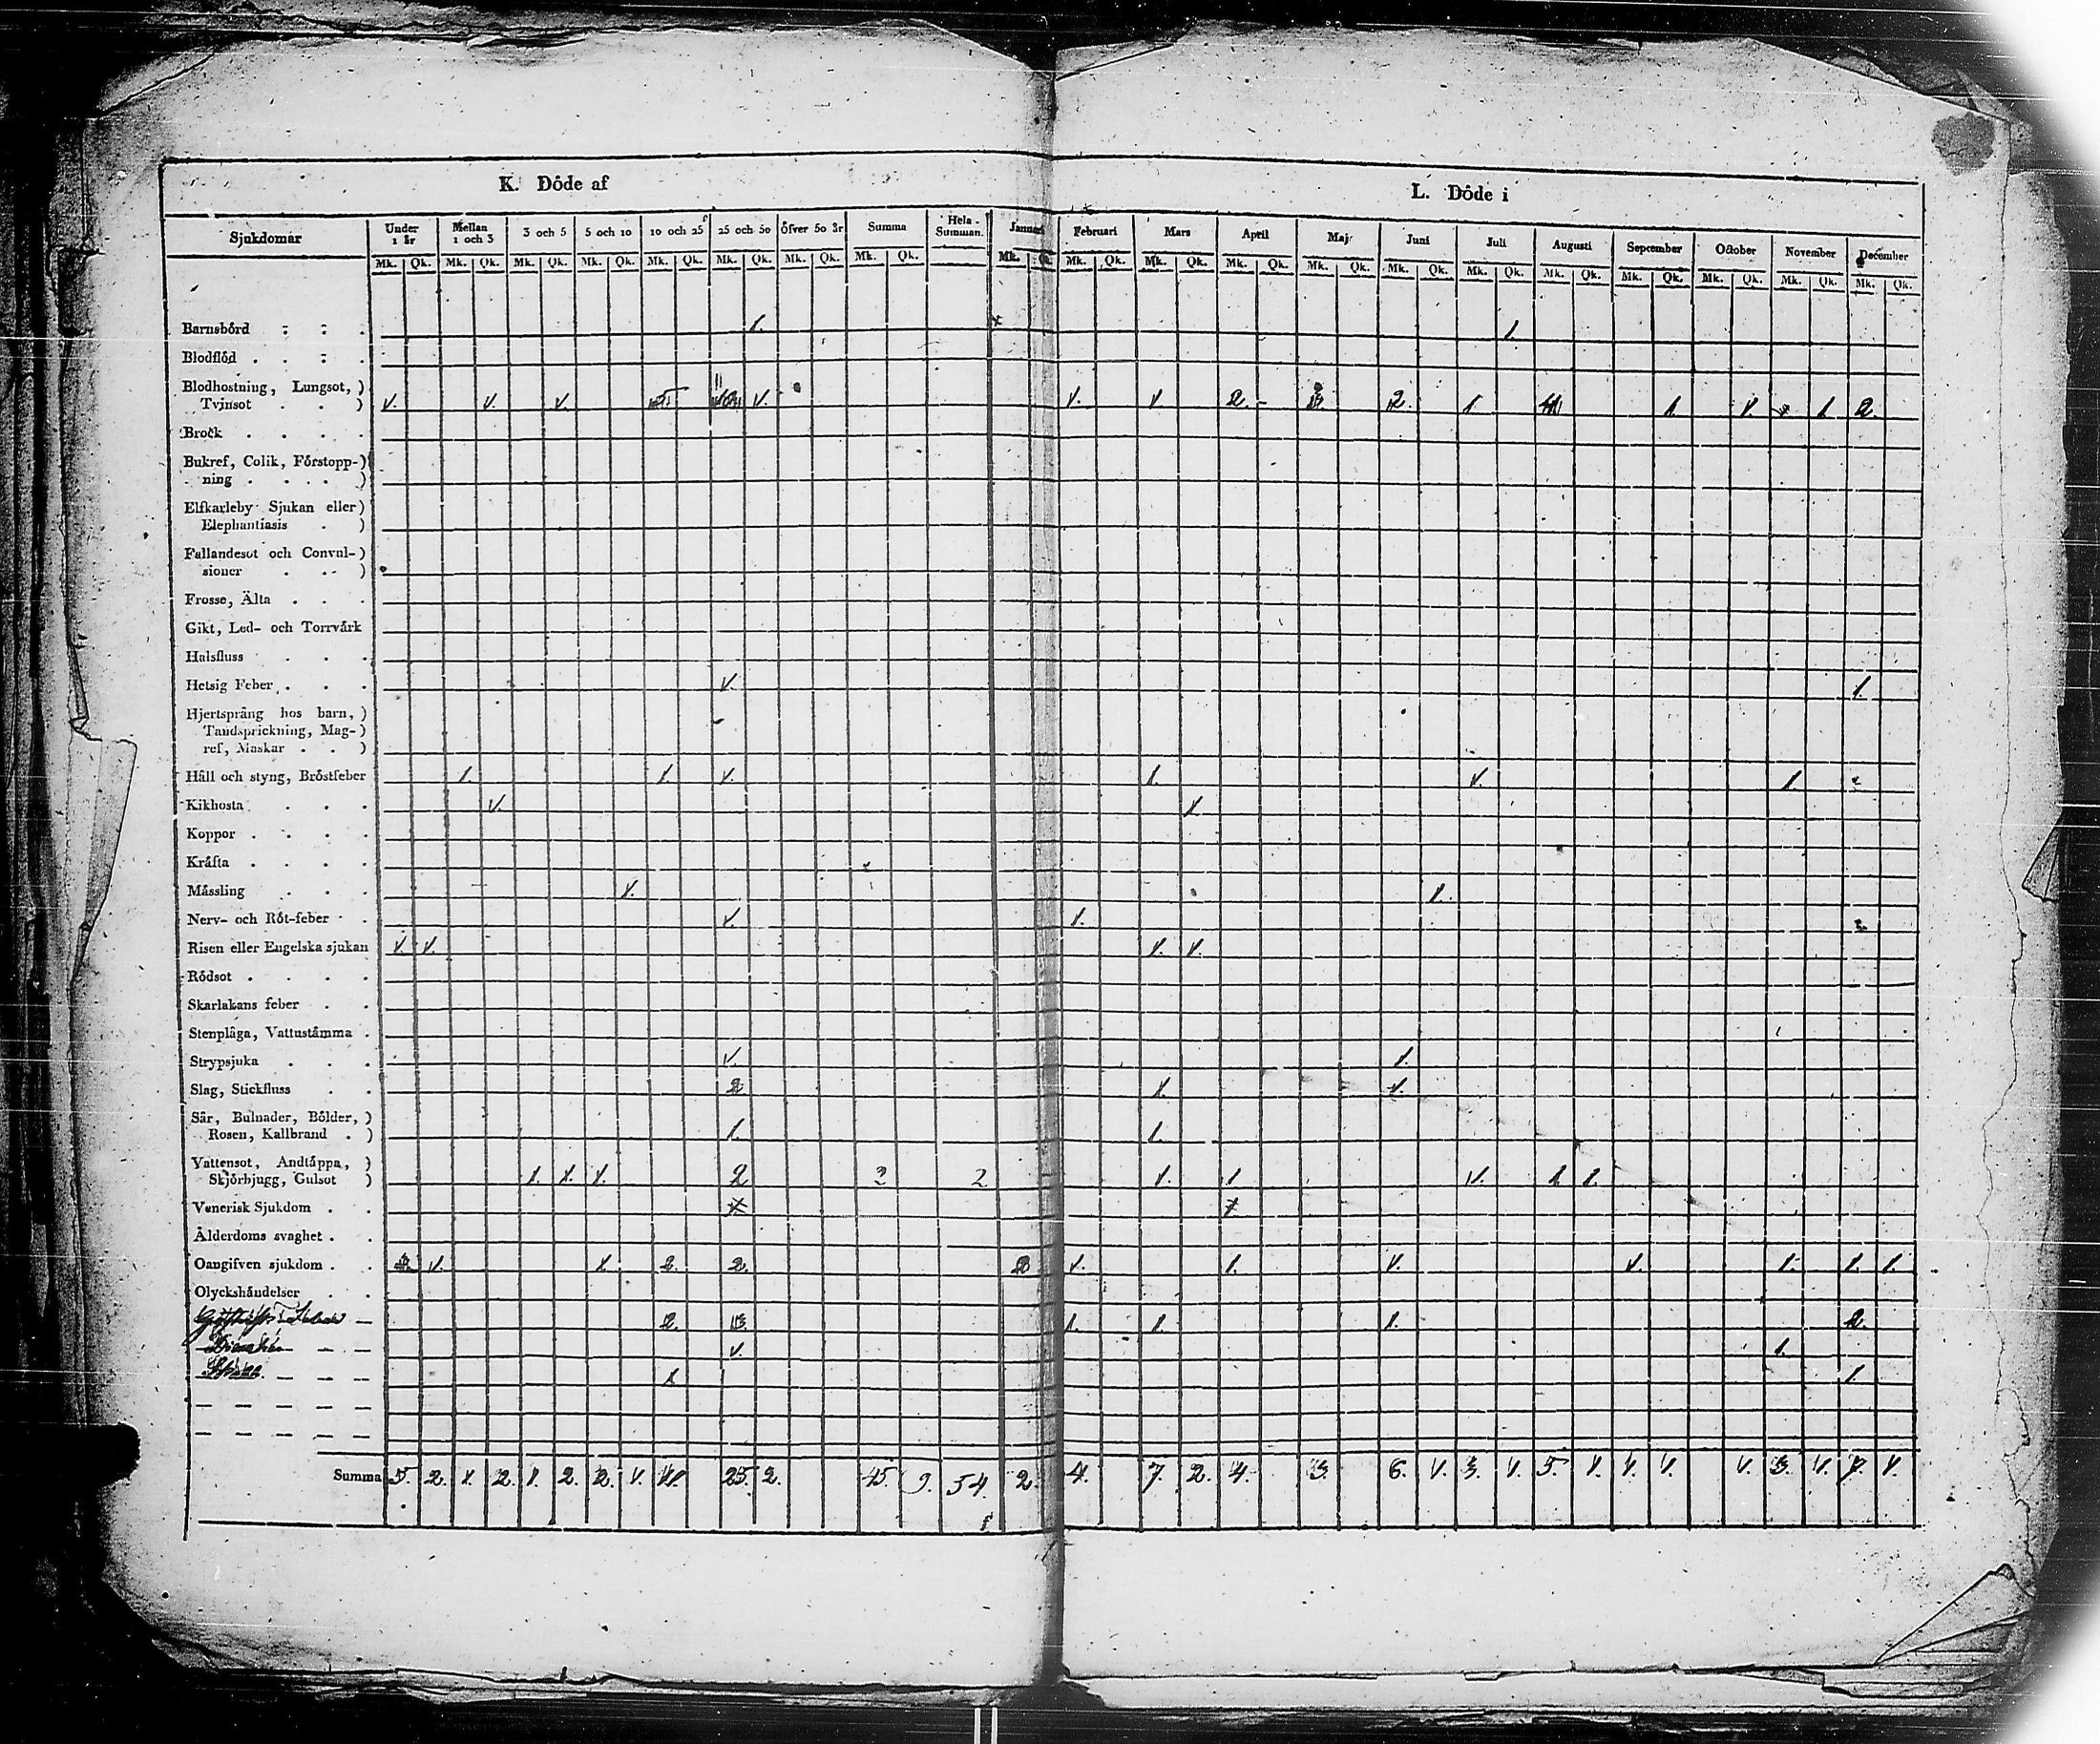 K. Dôde af
L. Dôde i
Sjukdomar Under 1 år Mellan 1 och 3 3 och 5 5 och 10 10 och 25 25 och 50 öfver 50 år Summa Hela Summan. Januari Februari Mars April Maj Juni Juli Augusti September October November December
Mk. Qk. Mk. Qk. Mk. Qk. Mk. Qk. Mk. Qk. Mk. Qk. Mk. Qk. Mk. Qk. Mk. Mk. Qk. Mk. Qk. Mk. Qk. Mk. Qk. Mk. Qk. Mk. Qk. Mk. Qk. Mk. Qk. Mk. Qk. Mk. Qk. Mk. Qk.
Barnsbôrd 1. 1.
Blodflôd
Blodhostning, Lungsot, )
Tvinsot ) 1. 1. 1. 1. 1. 1. 2. 2. 1. 1. 1. 1. 2.
Brock
Bukref, Colik, Fôrstopp-)
ning )
Elfkarleby Sjukan eller )
Elephantiasis )
Fallandesot och Convul-)
sioner )
Frosse, Älta
Gikt, Led- och Torrvårk
Halsfluss
Hetsig Feber 1. 1.
Hjertsprång hos barn, )
Tandsprickning, Mag-)
ref, Maskar )
Håll och styng, Brôstfeber 1. 1. 1. 1. 1. 1.
Kikhosta 1. 1.
Koppor
Kråfta
Måssling 1. 1.
Nerv- och Rôt-feber 1. 1.
Risen eller Engelska sjukan 1. 1. 1. 1.
Rôdsot
Skarlakans feber
Stenplåga, Vattuståmma
Strypsjuka 1. 1.
Slag, Stickfluss 2. 1. 1.
Sår, Bulnader, Bôlder, )
Rosen, Kallbrand ) 1. 1.
Vattensot, Andtåppa, )
Skjôrbjugg, Gulsot ) 1. 1. 1. 2 2 2 1. 1 1. 1. 1.
Venerisk Sjukdom
Ålderdoms svaghet
Oangifven sjukdom 2. 1. 1. 2. 2. 2 1. 1. 1. 1. 1. 1. 1.
Olyckshåndelser
2. 3. 1. 1. 1. 2.
1. 1.
1. 1.
Summa 5. 2. 1. 2. 1. 2. 2. 1. 11. 25. 2. 45. 9. 54. 2. 4. 7. 2. 4. 3. 6. 1. 3. 1. 5. 1. 1. 1. 1. 3. 1. 7. 1.